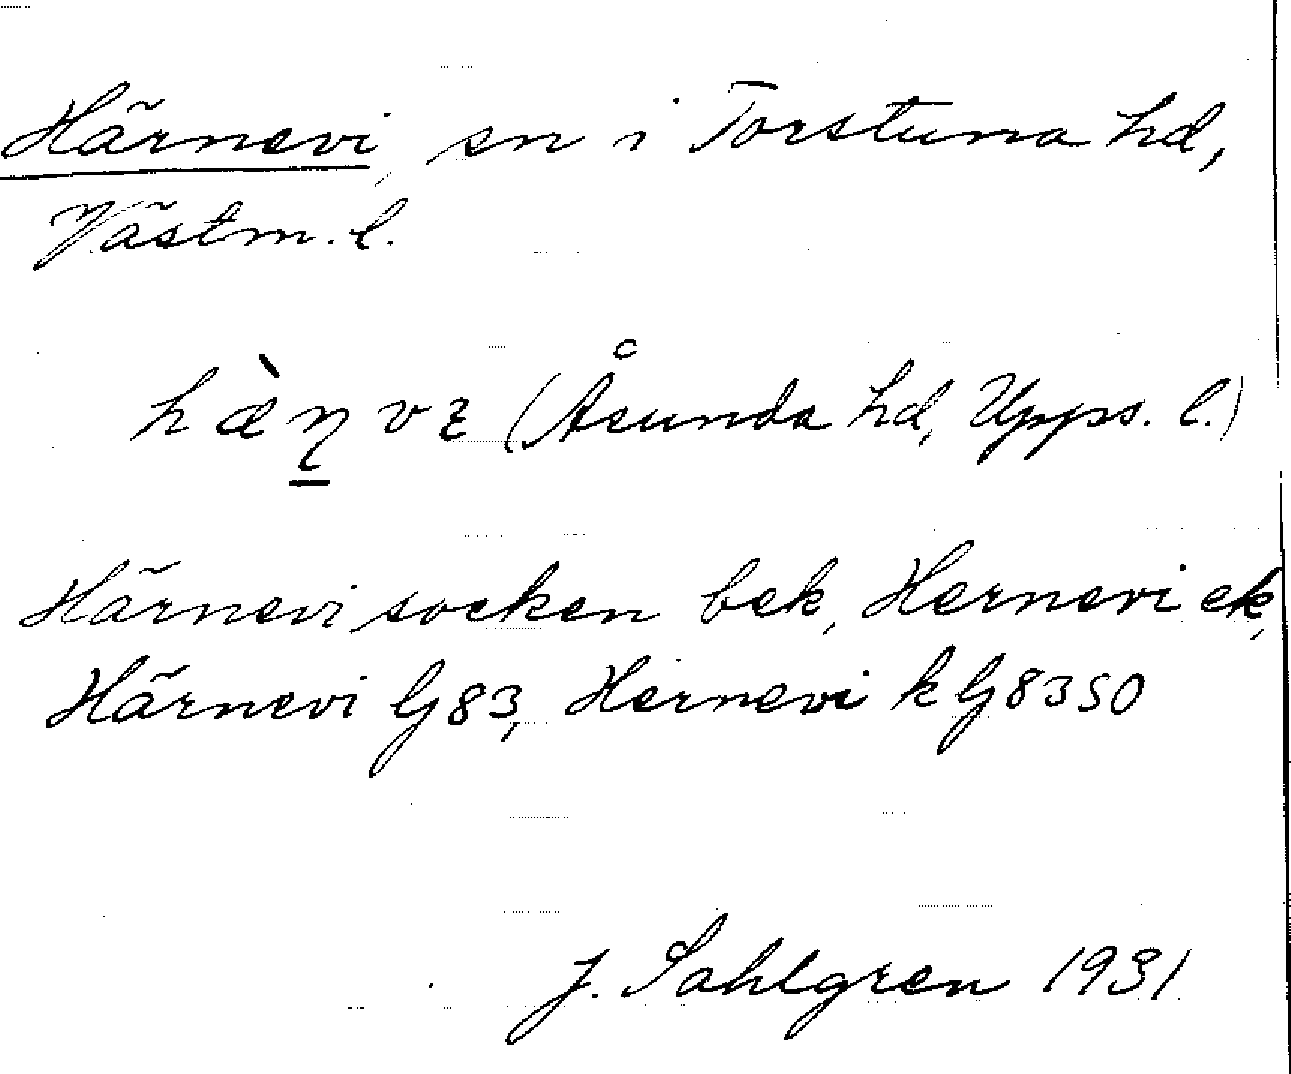 Härnevi, sn i Torstuna hd,
Västm. l.
hæ̀ɳvɪ (Åsunda hd, Upps. l.)
Härnevi socken bek, Hernevi ek,
Härnevi G83, Hernevi k G8350
J. Sahlgren 1931